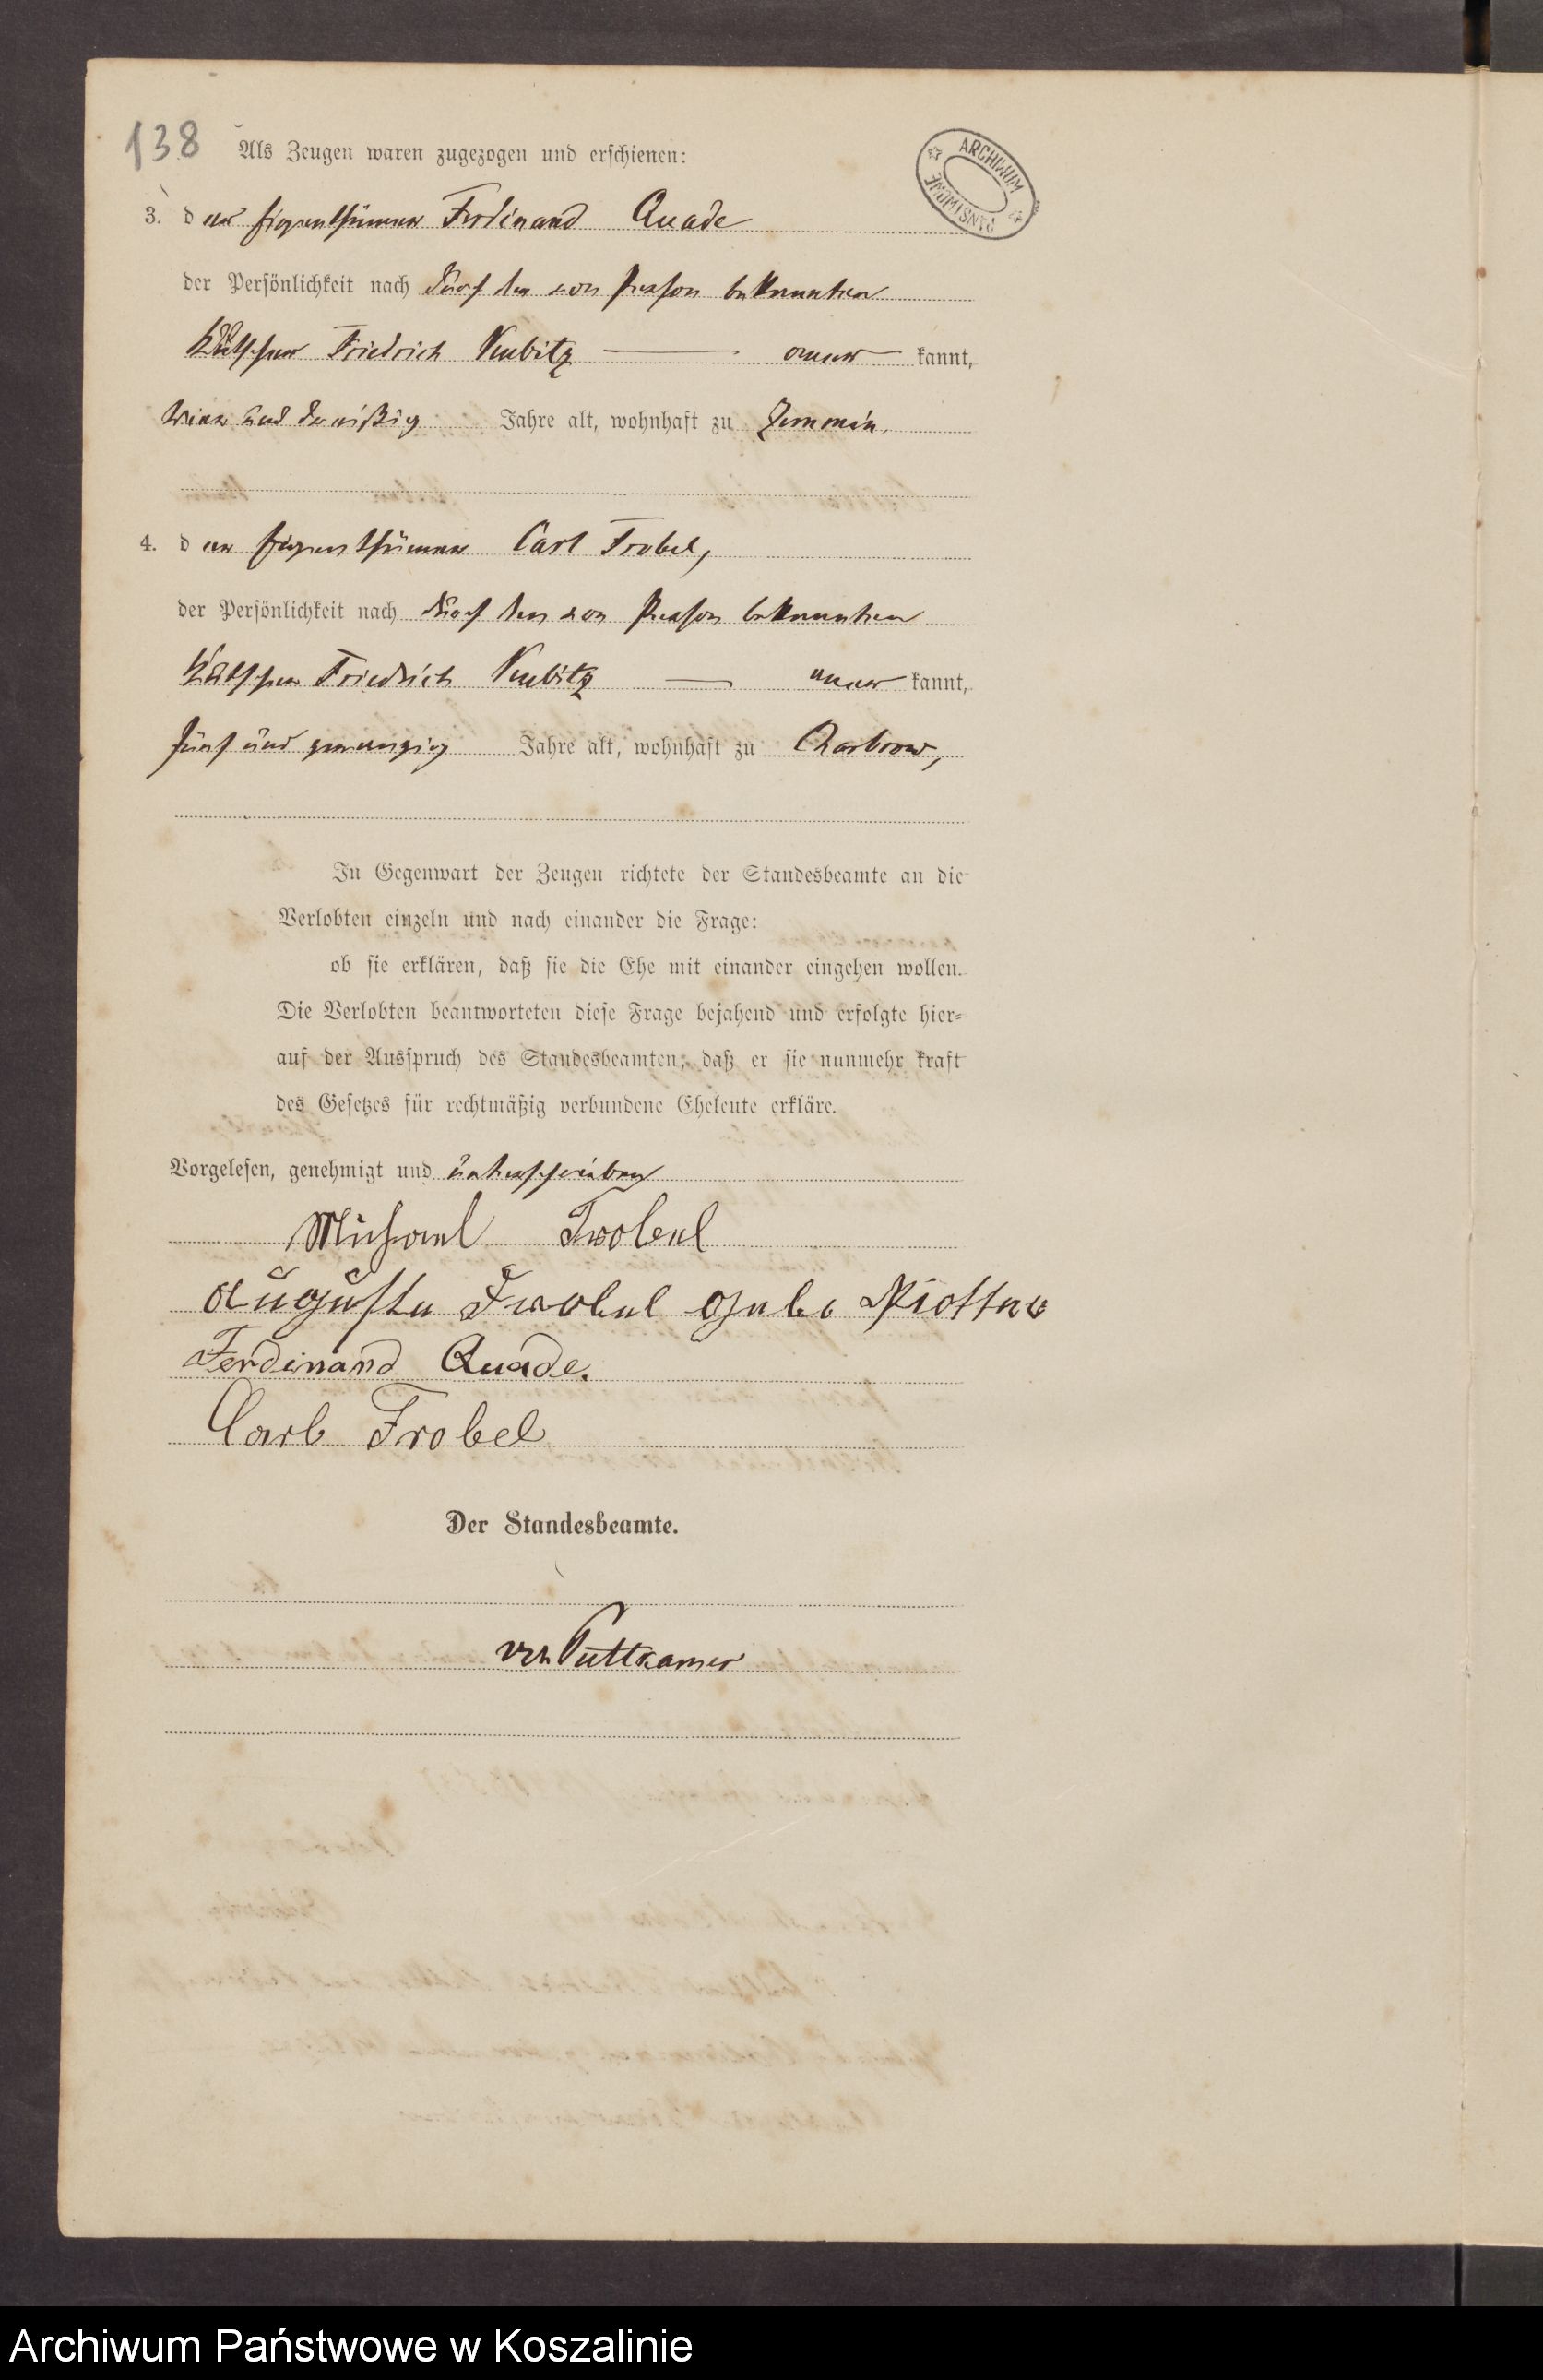 138 Als Zeugen waren zugezogen und erschienen:
ARCHIWUM PAŃSTWOWE
3. der Eigenthümer Ferdinand Quade
der Persönlichkeit nach durch den von Person bekannten
Friedrich kannt,
vier und dreißig Jahre alt, wohnhaft zu Zemmin,
4. der Eigenthümer Carl Trobel,
der Persönlichkeit nach durch den von Person bekannten
Friedrich kannt,
fünf und zwanzig Jahre alt, wohnhaft zu Charbrow,
In Gegenwart der Zeugen richtete der Standesbeamte an die
Verlobten einzeln und nach einander die Frage:
ob sie erklären, daß sie die Ehe mit einander eingehen wollen.
Die Verlobten beantworteten diese Frage bejahend und erfolgte hier-
auf der Ausspruch des Standesbeamten, daß er sie nunmehr kraft
des Gesetzes für rechtmäßig verbundene Eheleute erkläre.
Vorgelesen, genehmigt und unterschrieben
Michael Trobel
Auguste Trobel gebo
Ferdinand Quade.
Carl Trobel
Der Standesbeamte.
von Puttkamer
Archiwum Państwowe w Koszalinie